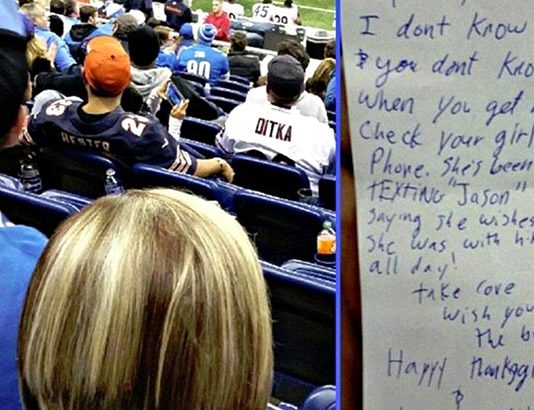 45
90
HESTER
23
DITKA
I dont know
you dont kno
when you get
Check your girl
Phone. She's been
TEXTING "Jason"
saying she wishes
She was with hi
all day!
take care
wish you
the b
Happy thanksgi